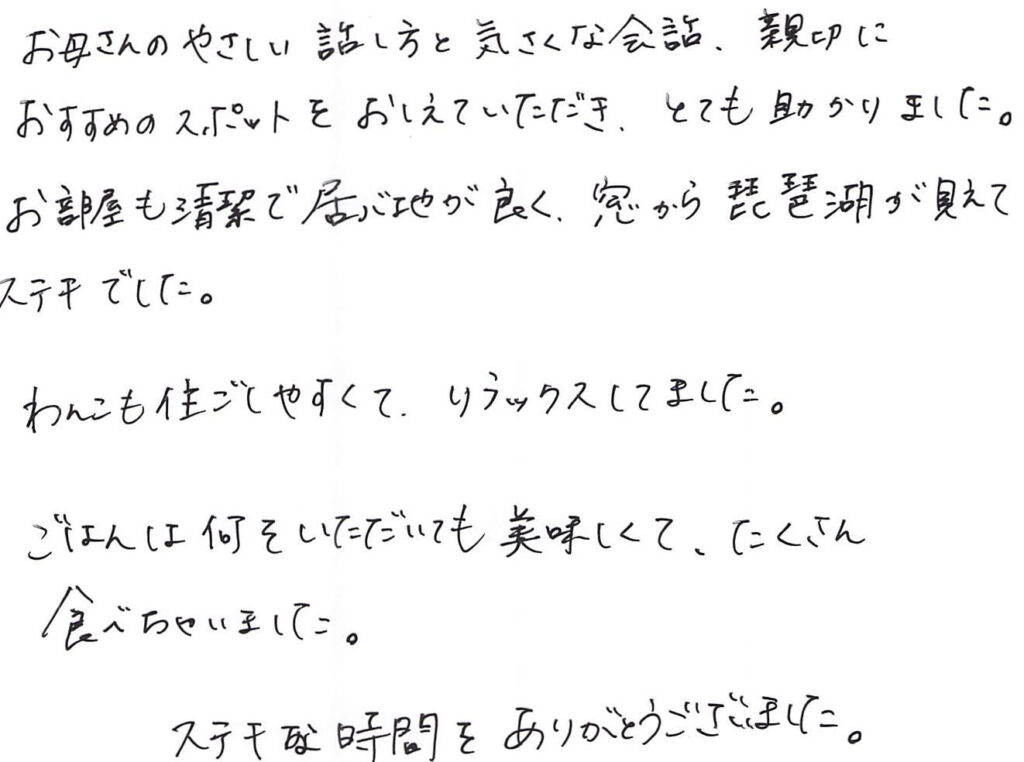 お母さんのやさしい話し方と気さくな会話、親切に
おすすめのスポットをおしえていただき、とても助かりました。
お部屋も清潔で居心地が良く、窓から琵琶湖が見えて
ステキでした。
わんこも住ごしやすくて、リラックスしてました。
ごはんは何をいただいても美味しくて、たくさん
食べちゃいました。
ステキな時間をありがとうございました。